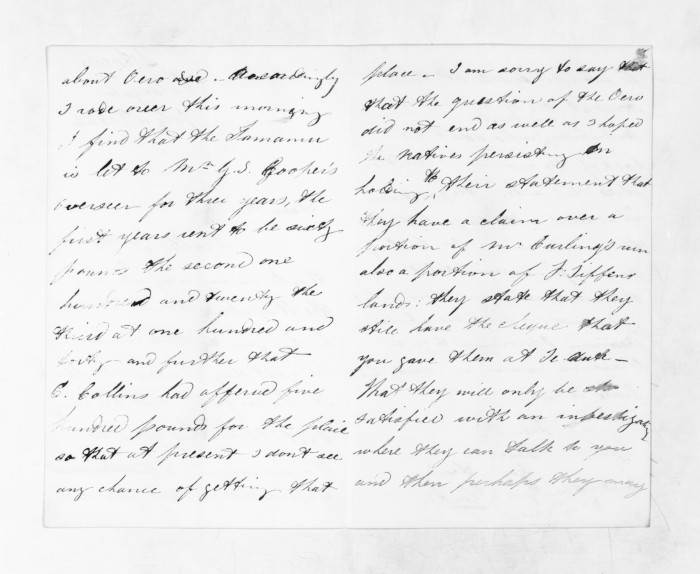 about Oero and - Accordingly
I rode over this morning
I find that the Tamanu
is let to Mr G. S. Coopers
overseer for three years, the
first years rent to be sixty
pounds the second one
hundred and twenty the
third at one hundred and
forty and further that
E. Collins had offered five
hundred pounds for the place
so that at present I dont see
any chance of getting that
place - I am sorry to say that
that the question of the Oero
did not end as well as I hoped
the natives persisting in
holding to their statement that
they have a claim over a
portion of Mr Curling's run
also a portion of J. Tiffens
lands: they state that they
still have the cheque that
you gave them at Te -
that they will only be
satisfied with an investigatn
where they can talk to you
and then perhaps they may